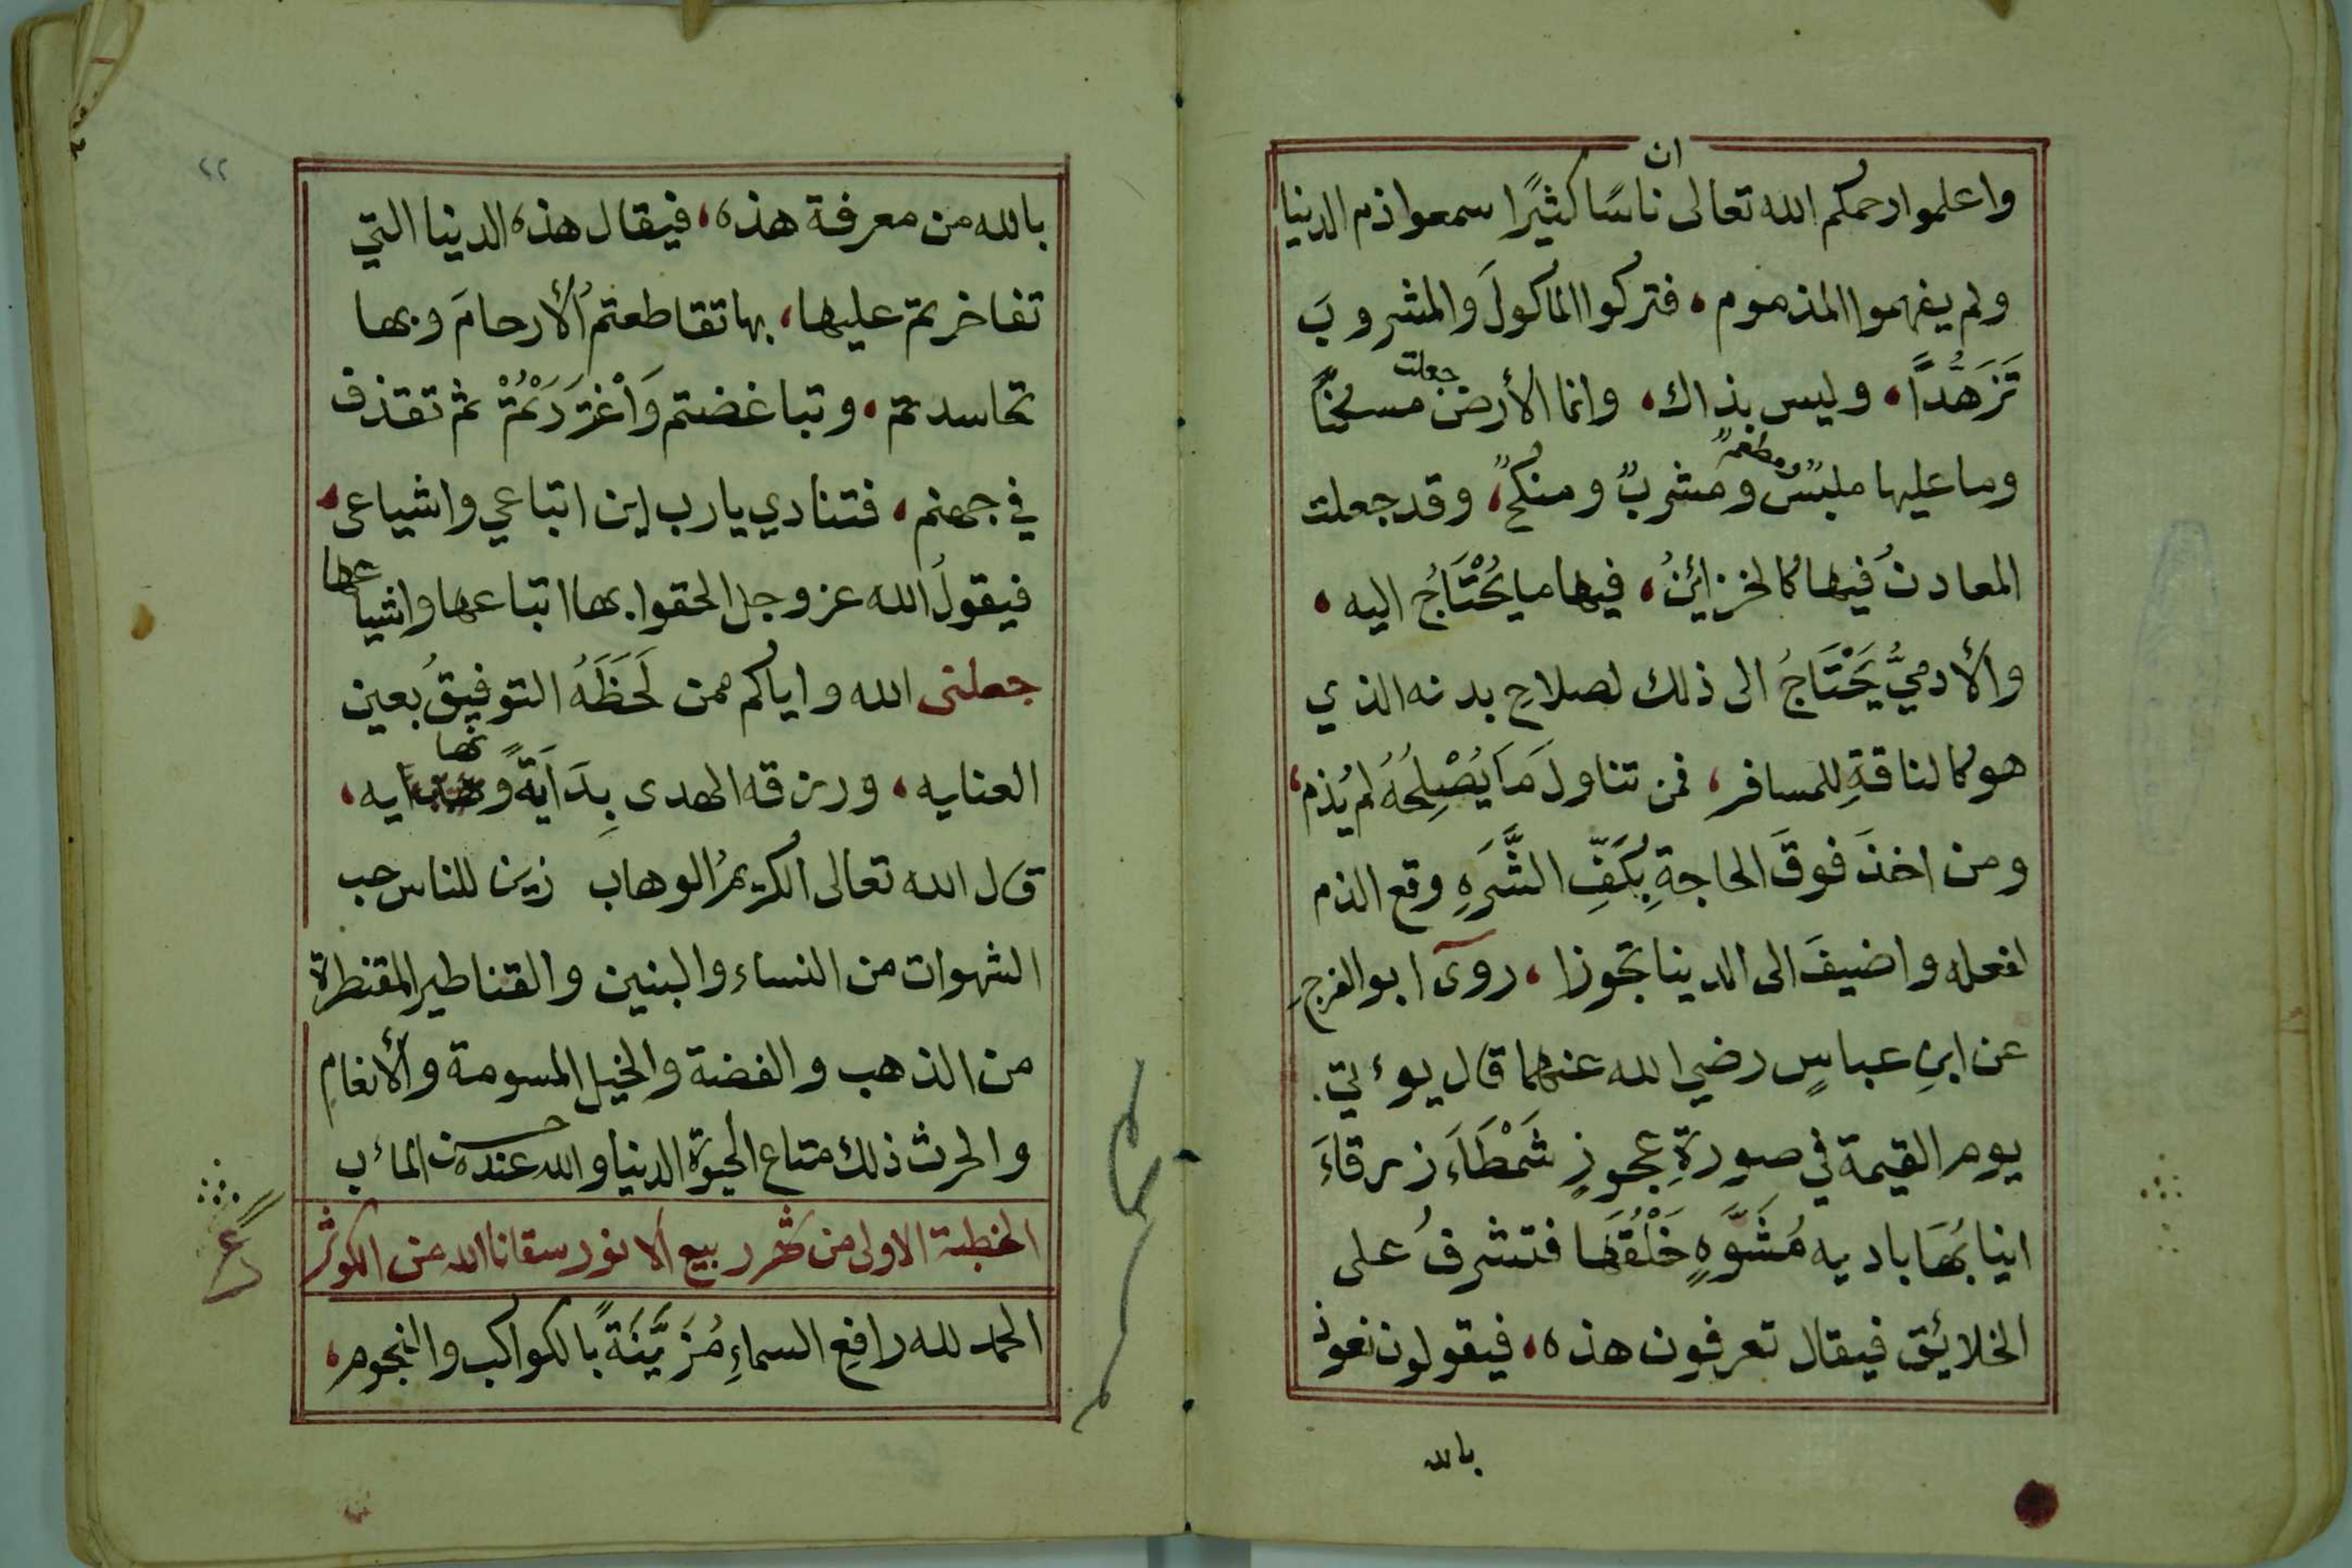 واعلموا رحمكم الله تعالى ان ناسًا كثيرًا سمعوا ذم الدنيا
ولم يفهموا المذموم، فتركوا المأكولَ والمشروبَ
تَزَهُّدًا، وليس بذاك، وانما الأرض جعلت مسكنًا
وما عليها ملبسٌ ومطعمٌ ومشربٌ ومنكحٌ، وقد جعلت
المعادنُ فيها كالخزائنُ، فيها ما يُحْتَاجُ اليه،
والأدميُّ يَحْتَاجُ الى ذلك لصلاحِ بدنه الذي
هو كالناقةِ للمسافر، فمن تناولَ مَا يُصْلِحُهُ لم يُذم،
ومن اخذَ فوقَ الحاجةِ بِكَفِّ الشَّرَهِ وقع الذم
لفعله واضيفَ الى الدينا تجوزا، روى ابو الفرج
عن ابنِ عباسٍ رضي الله عنهما قال يوءتي
يوم القيمة في صورةِ عجوزٍ شَمْطَاءَ زرقاءَ
انيابُهَا باديه مُشَوَّهٍ خَلْقُهَا فتشرفُ على
الخلائق فيقال تعرفون هذه، فيقولون نعوذ
بالله
٢٢
بالله من معرفة هذه، فيقال هذه الدنيا التي
تفاخرتم عليها، بها تقاطعتمُ الأرحامَ وبها
تحاسدتم، وتباغضتم وَاْغْتَرَرْتُمْ ثم تقذف
في جهنم، فتنادي يارب اين اتباعي واشياعى،
فيقولُ الله عز وجل الحقوا بها اتباعها واشياعها
جعلنى الله واياكم ممن لَحَظَهُ التوفيقُ بعين
العنايه، ورزقه الهدى بِدَايَةً ونهايه،
قال الله تعالى الكريمُ الوهاب زين للناس حب
الشهوات من النساء والبنين والقناطير المقنطرة
من الذهب والفضة والخيل المسومة والأنعام
والحرث ذلك متاع الحيوة الدنيا والله عنده حسن المأب
الخطبة الاولى من شهر ربيع الانور سقانا الله من الكوثر
الحمد لله رافعِ السماءِ مُزَيَّنَةً بالكواكب والنجوم،